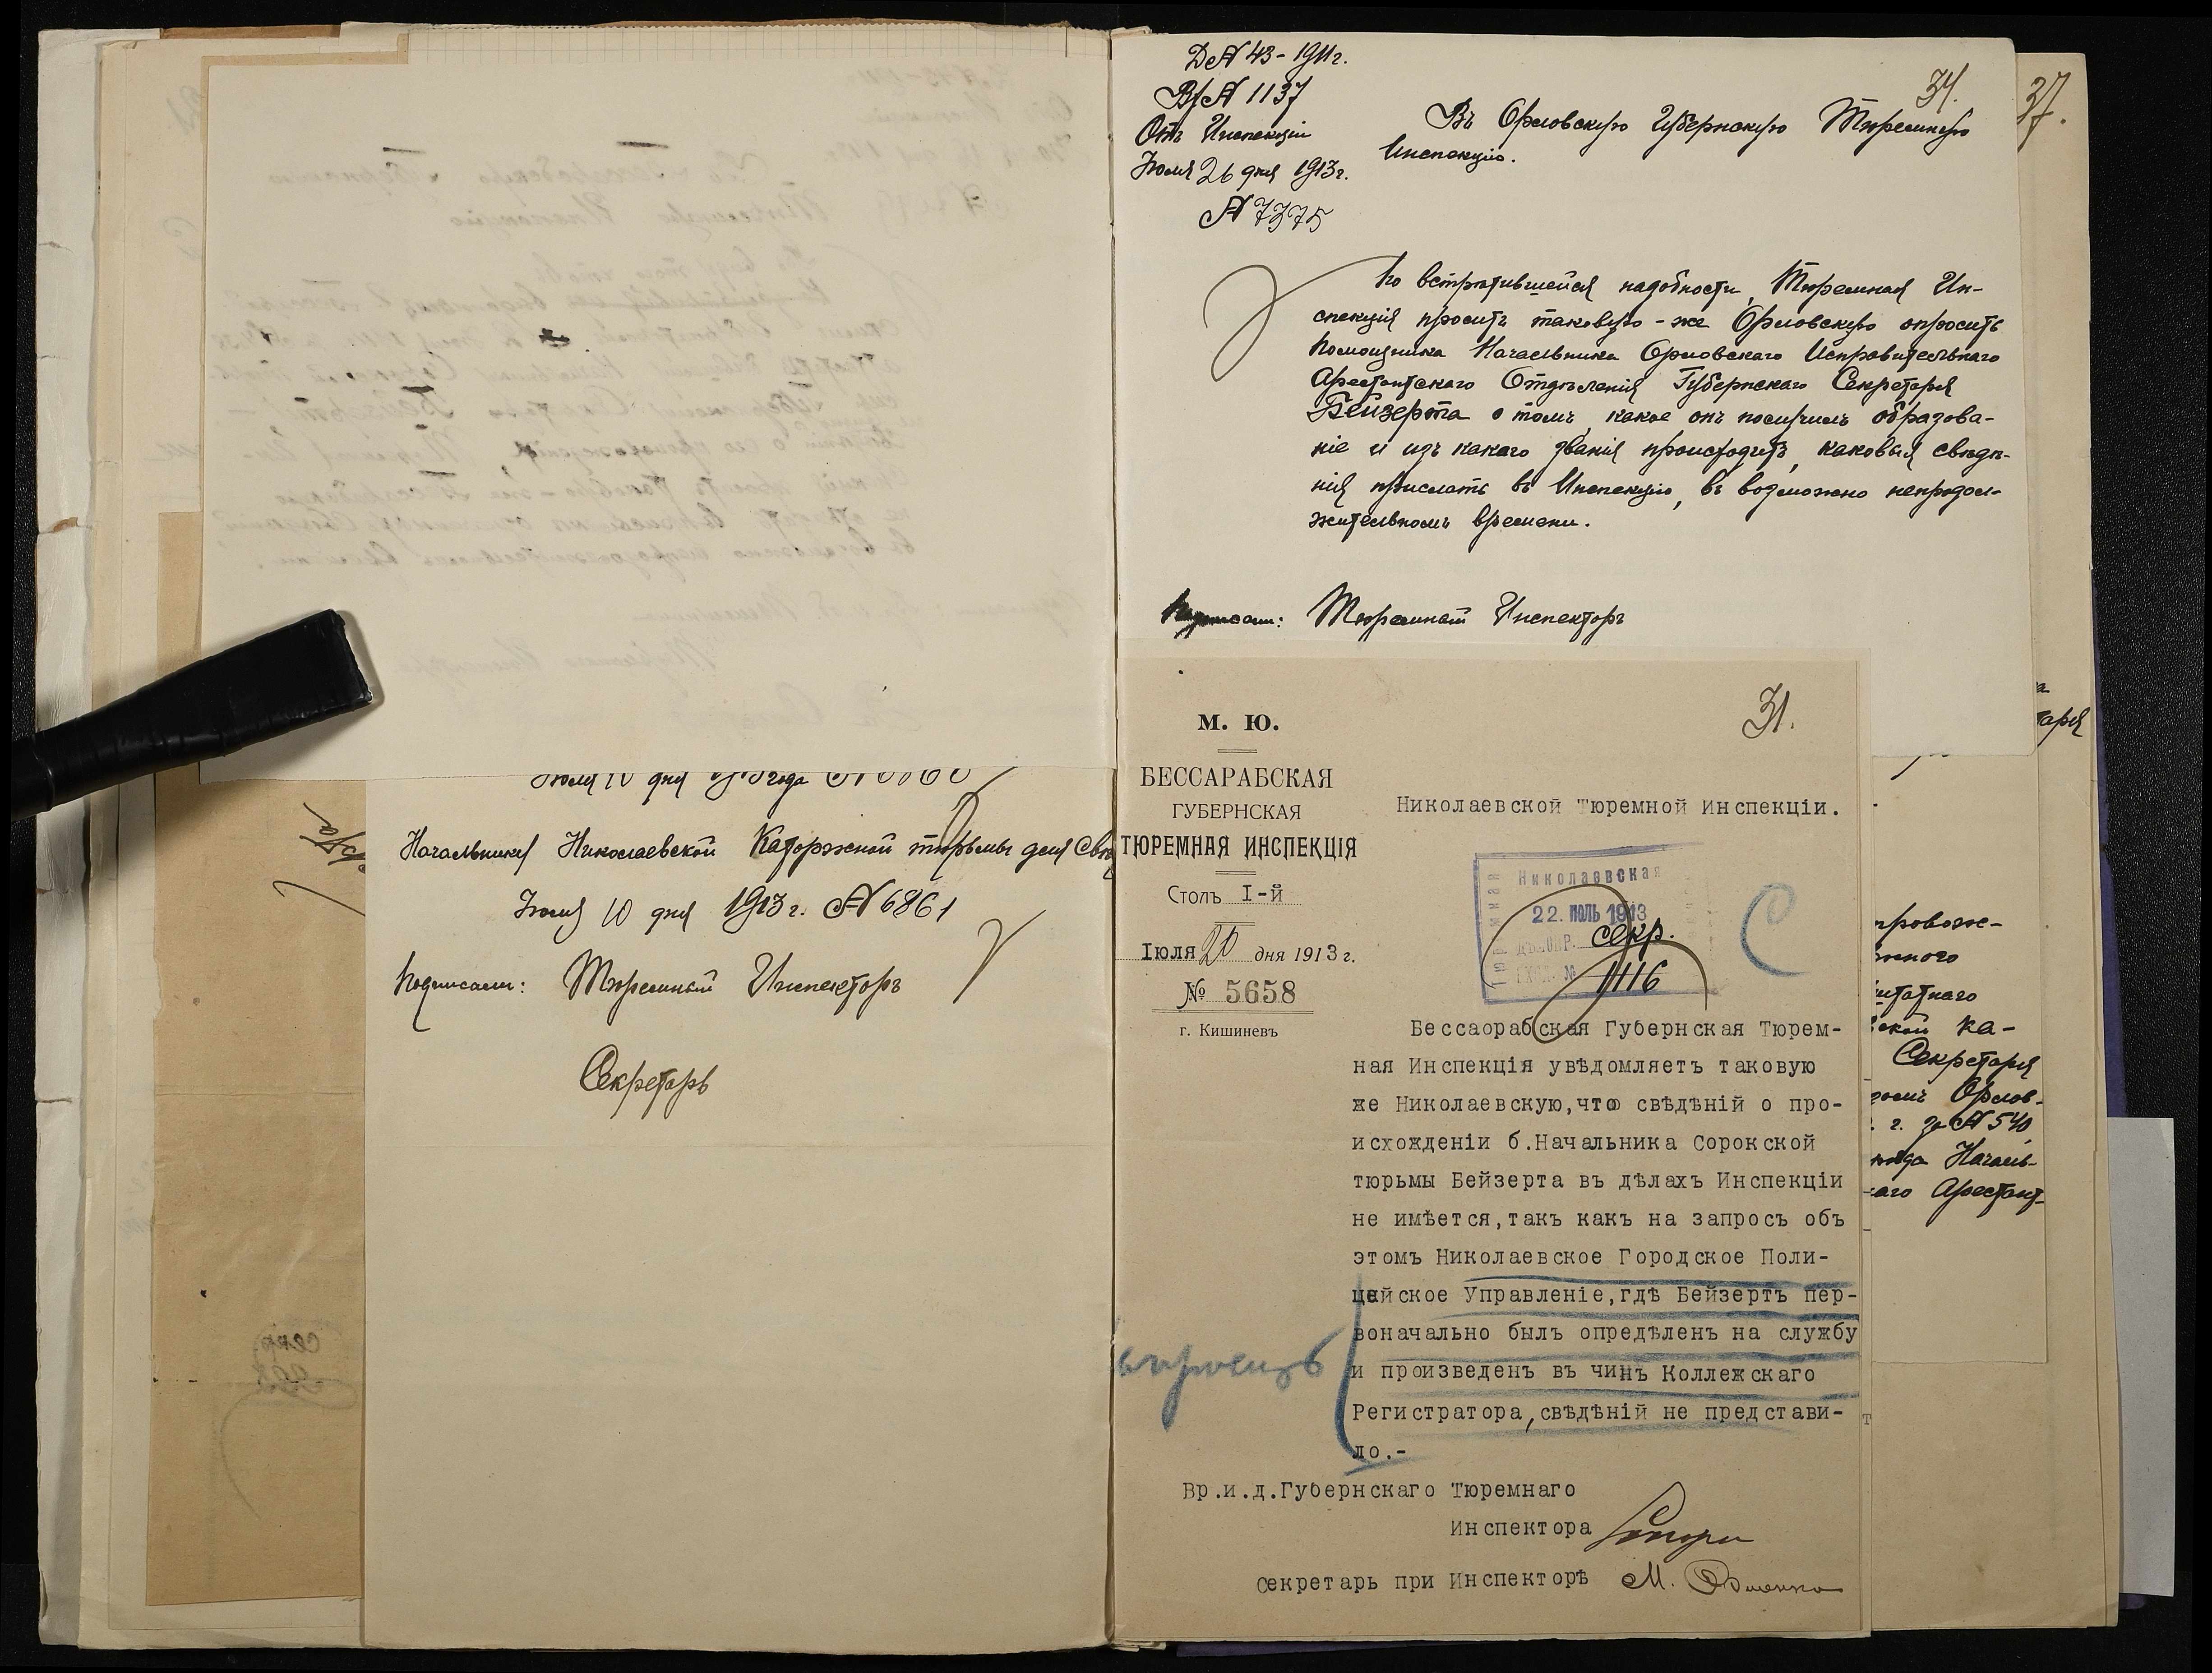 Іюля 10 дня 1913 года №
Начальнику Николаевской Каторжной тюрьмы для свѣд
Іюля 10 дня 1913 г. № 6861
Подписали: Тюремный Инспекторъ
Секретарь
Д № 43 - 1911 г.
Вх № 1137
Отъ Инспекціи
Іюля 26 дня 1913 г.
№ 7375
34.
37.
Въ Орловскую Губернскую Тюремную
Инспекцію.
По встрѣтившейся надобности, Тюремная Ин-
спекція проситъ таковую-же Орловскую опросить
Помощника Начальника Орловскаго Исправительнаго
Арестантскаго Отдѣленія Губернскаго Секретаря
Бейзерта о томъ, какое онъ получилъ образова-
ніе и изъ какого званія происходитъ, каковыя свѣдѣ-
нія прислать въ Инспекцію, въ возможно непродол-
жительномъ времени.
Подписали: Тюремный Инспекторъ
31.
М. Ю.
БЕССАРАБСКАЯ
ГУБЕРНСКАЯ
ТЮРЕМНАЯ ИНСПЕКЦІЯ
Столъ I-й
Іюля 20 дня 1913 г.
№ 5658
г. Кишиневъ
Николаевской Тюремной Инспекціи.
Николаевская
22. ІЮЛЬ 1913
секр.
1116
Бессаорабская Губернская Тюрем-
ная Инспекція увѣдомляетъ таковую
же Николаевскую,что свѣдѣній о про-
исхожденіи б.Начальника Сорокской
тюрьмы Бейзерта въ дѣлахъ Инспекціи
не имѣется,такъ какъ на запросъ объ
этомъ Николаевское Городское Поли-
цейское Управленіе,гдѣ Бейзертъ пер-
воначально былъ опредѣленъ на службу
и произведенъ въ чинъ Коллежскаго
Регистратора,свѣдѣній не представи-
ло.-
Вр.и.д.Губернскаго Тюремнаго
Инспектора
Секретарь при Инспекторѣ М.
провож-
таря
ской ка-
Секретаря
Орлов-
г. за № 540
Началь-
Арестант-